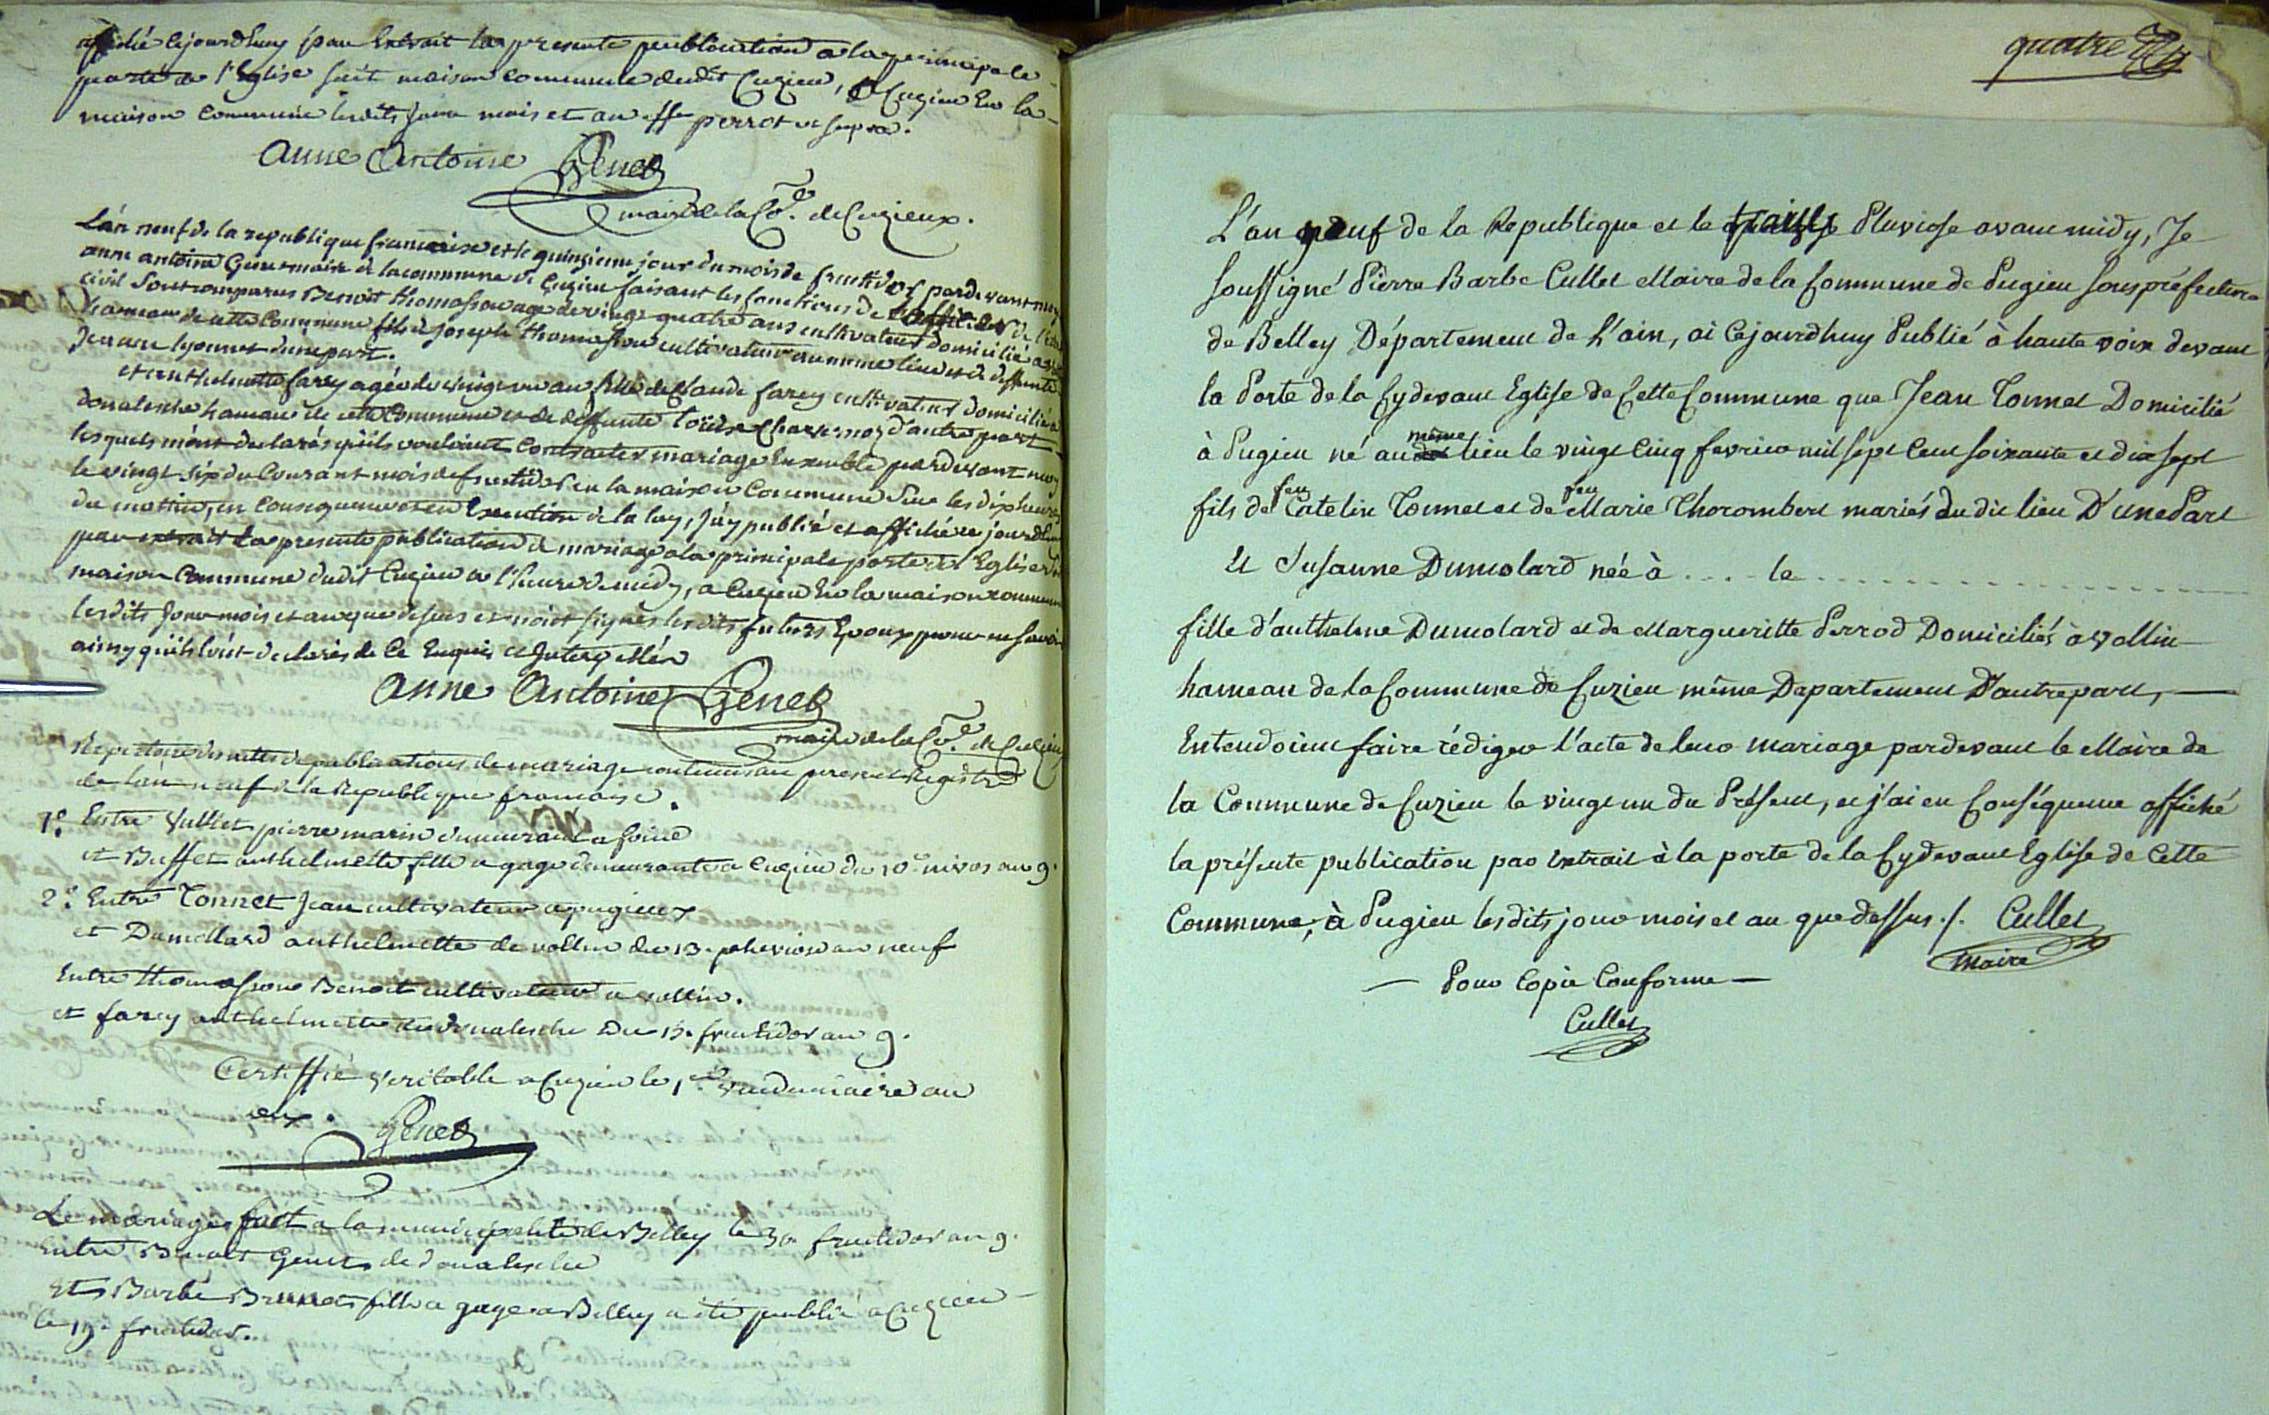 affiché cejourdhuy par Extrait la presente publication a la principale
porte de l'Eglise suit maison commune dudit Cuzieu, a Cuzieu En la
maison commune lesdits Jour mois et an
Anne Antoine Genet
maire de la Cne. de Cuzieux.
L'an neuf de la republique francaise et le quinzieme jour du mois de fructidor pardevant moy
anne antoine Genet maire de la commune de Cuzieu faisant les fonctions de l'officier de l'état
civil Sont comparus Benoit thomasson age de vingt quatre ans cultivateur domicilié a
hameau de cette Commune fils de joseph thomasson cultivateur au meme lieu et de deffunte
lyonnet d'une part.
et anthelmette farcy agée de vingt un an fille de Claude farcy cultivateur domicilié a
donalesche hameau de cette Commune et de deffunte Loüise Charvenoz d'autre part
lesquels m'ont declarés qu'ils vouloient Contracter mariage Ensemble pardevant moy
le vingt six du Courant mois de fructidor en la maison Commune Sur les dix heures
du matin, en consequence et en Execution de la loy, J'ay publié et affiché ce jourdhuy
par extrait la presente publication de mariage a la principale porte de l'Eglise
maison Commune dudit Cuzieu a l'heure de midy, a Cuzieu En la maison commune
lesdits Jour mois et an que dessus et n'ont signés lesdits futurs Epoux pour ne savoir
ainsy qu'ils l'ont declarés de Ce Enquis et Interpellés
Anne Antoine Genet
maire de la Cne. de Cuzieu
Repertoire des actes de publications de mariage contenus au present Registre
de l'an neuf de la Republique francaise.
1°. Entre Vulliet pierre marin demeurant a
et Buffet anthelmette fille a gage demeurante a Cuzieu du 10e nivos an 9.
2°. Entre Tonnet Jean cultivateur a pugieux
et Dumollard anthelmette de vollin du 13. pluviose an neuf
Entre thomasson Benoit cultivateur a vollin.
et farcy anthelmette de donalesche Du 15. fructidor an 9.
Certiffié veritable a Cuzieu le 1er vendemiaire an
dix. Genet
Le mariage fait à la municipalité de Belley le 30 fructidor an 9.
entre Benoit Genet de donalesche
Et Barbe Brunet fille a gage a Belley a été publié a Cuzieu
le 19. fructidor.
quatre
L'an neuf de la Republique et le treize Pluviose avant midy, Je
soussigné Pierre Barbe Cullet Maire de la Commune de Pugieu souspréfecture
de Belley Département de L'ain, ai Cejourdhuy Publié à haute voix devant
la Porte de la Cydevant Eglise de Cette Commune que Jean Tonnet Domicilié
à Pugieu né au même lieu le vingt Cinq fevrier mil sept Cent soixante et dix sept
fils de feu Catelin Tonnet et de feu Marie Thorombert mariés du dit lieu D'une Part
Et Susanne Dumolard née à .... le ..............
fille d'anthelme Dumolard et de Margueritte Perrod Domiciliés à Vollin
hameau de la Commune de Cuzieu même Departement D'autre part, —
Entendoient faire rédiger l'acte de leur mariage pardevant le Maire de
la Commune de Cuzieu le vingt un du Présent, et j'ai en Conséquence affiché
la présente publication par Extrait à la porte de la Cydevant Eglise de Cette
Commune, à Pugieu lesdits jour mois et an que dessus ./. Cullet
Maire
— Pour Copie Conforme —
Cullet